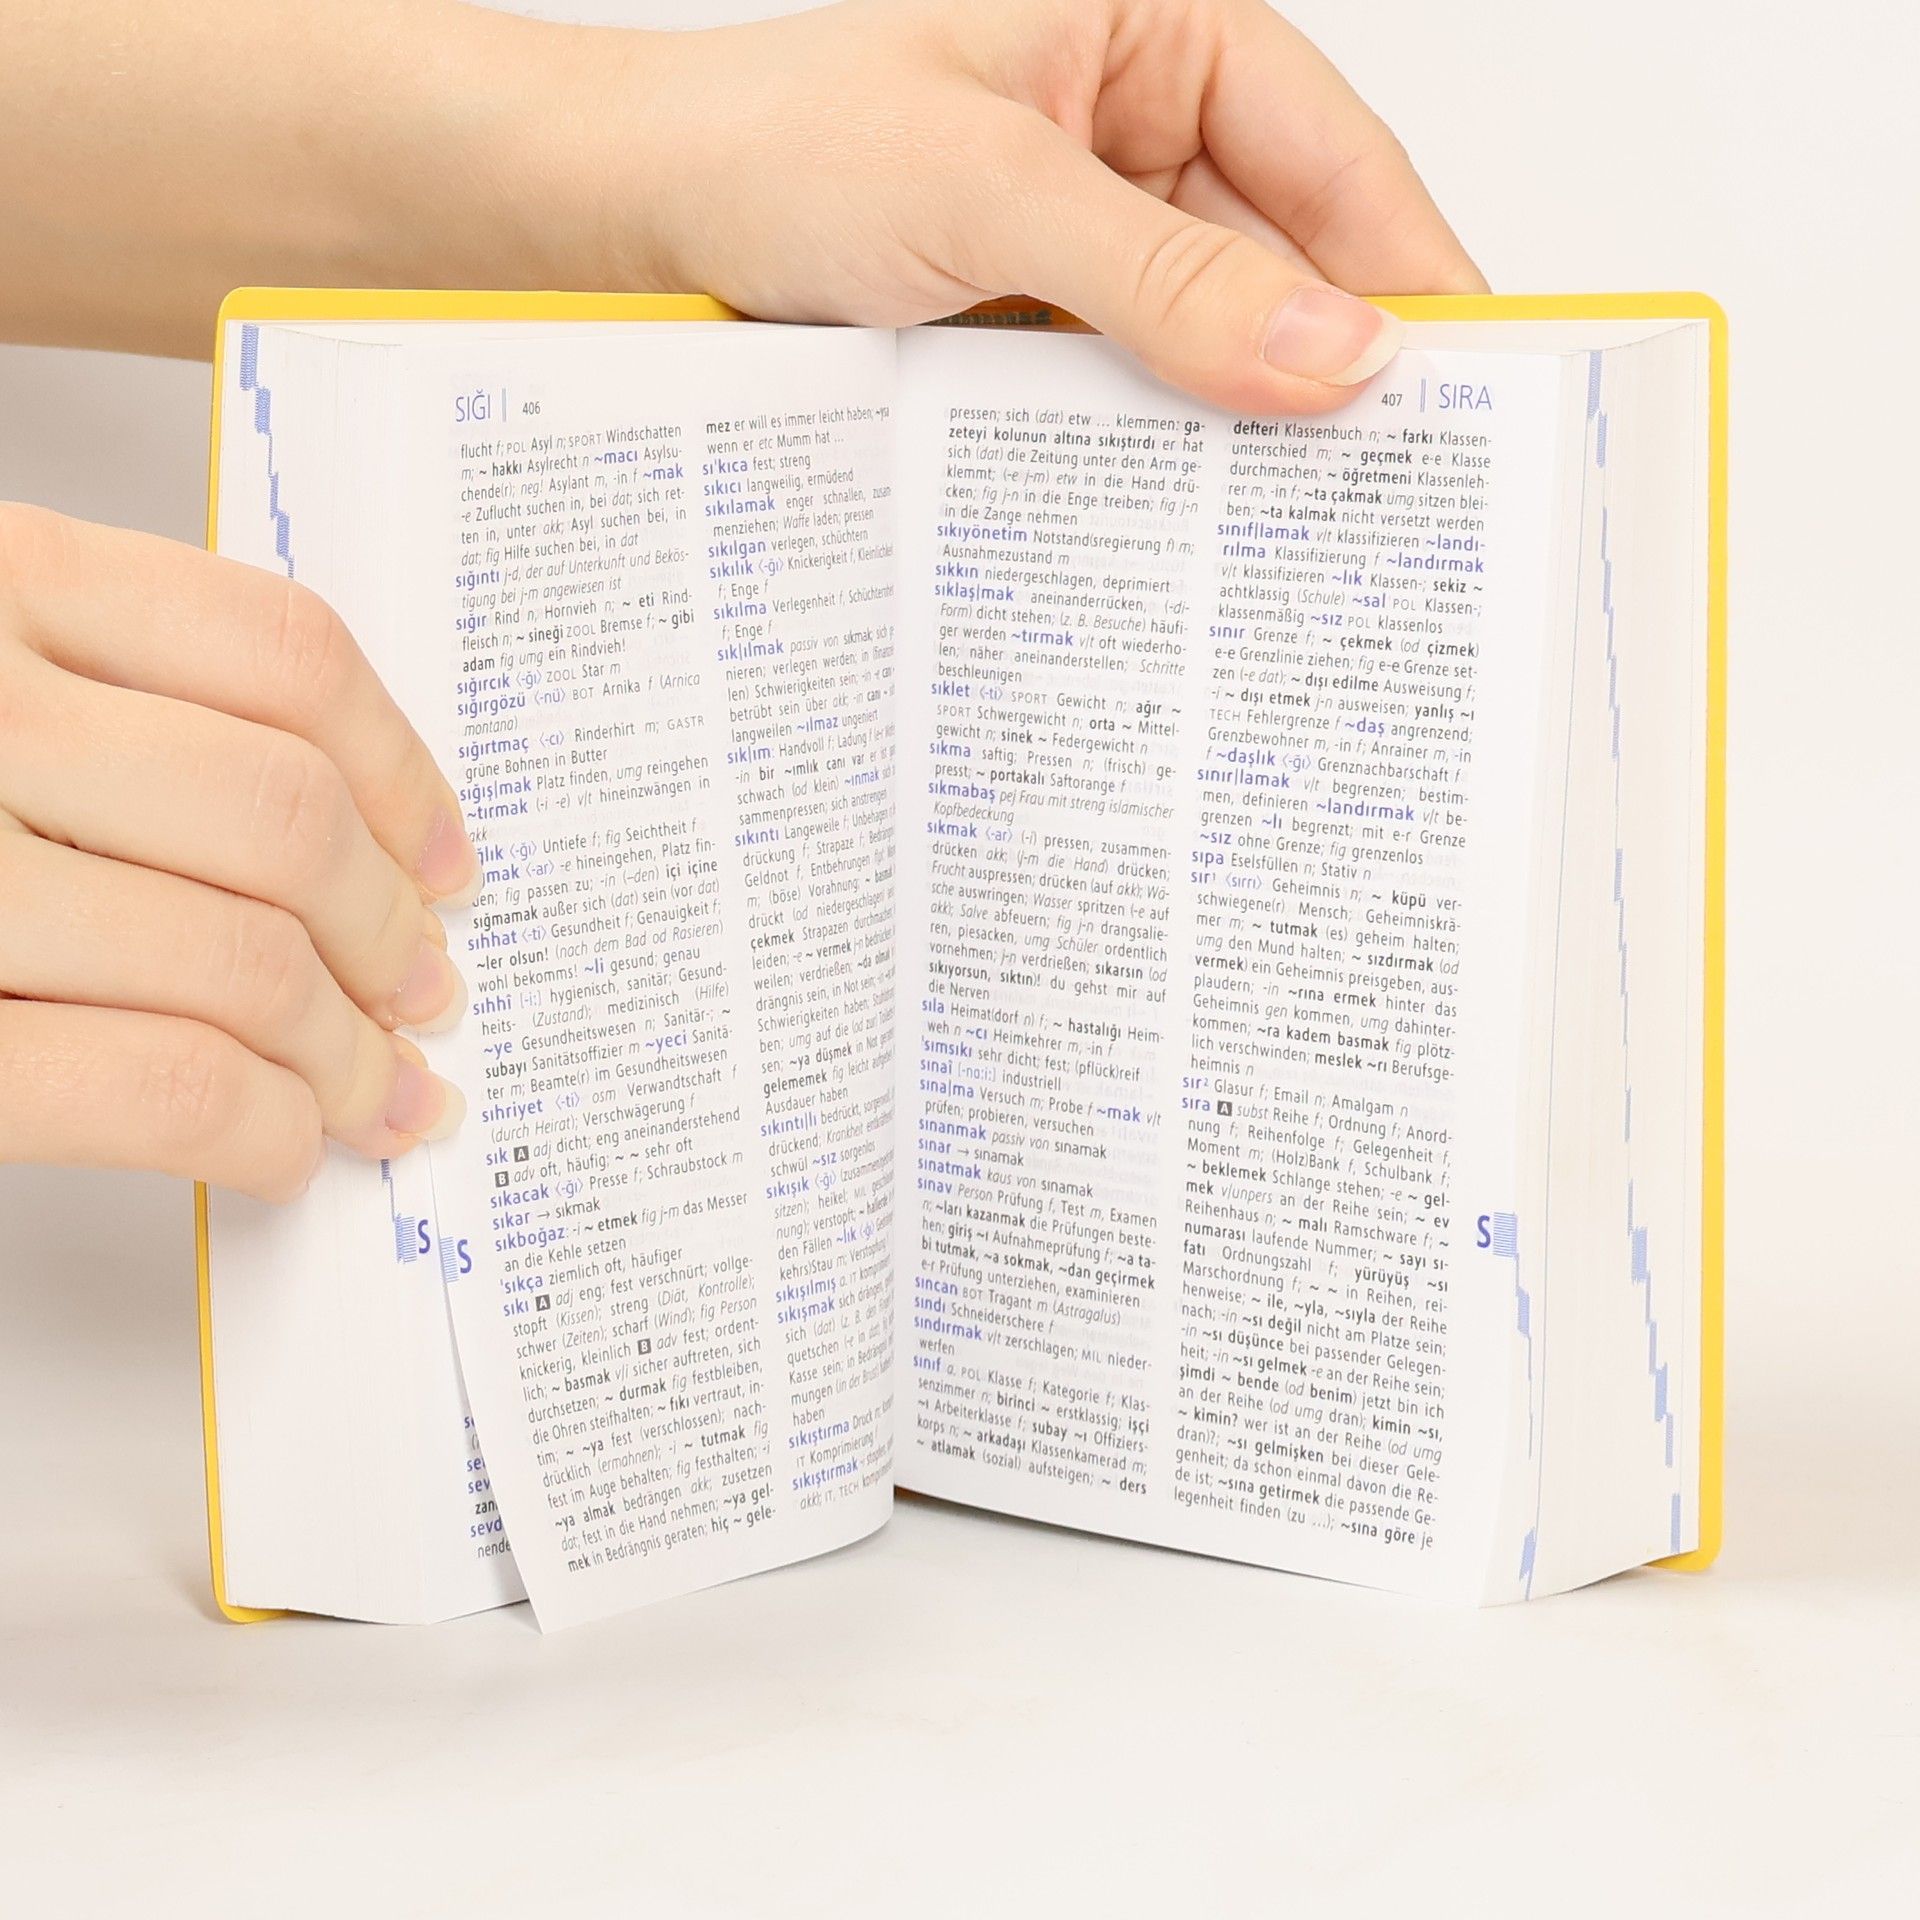 SIĞI 406
flucht f; POL Asyl n; SPORT Windschatten
m; ~ hakkı Asylrecht n ~macı Asylsu-
chende(r); neg! Asylant m, -in f ~mak
-e Zuflucht suchen in, bei dat; sich ret-
ten in, unter akk; Asyl suchen bei, in
dat; fig Hilfe suchen bei, in dat
sığıntı j-d, der auf Unterkunft und Bekös-
tigung bei j-m angewiesen ist
sığır Rind n, Hornvieh n; ~ eti Rind-
fleisch n; ~ sineği ZOOL Bremse f; ~ gibi
adam fig umg ein Rindvieh!
sığırcık ⟨-ğı⟩ ZOOL Star m
sığırgözü ⟨-nü⟩ BOT Arnika f (Arnica
montana)
sığırtmaç ⟨-cı⟩ Rinderhirt m; GASTR
grüne Bohnen in Butter
sığış|mak Platz finden, umg reingehen
~tırmak (-i -e) v/t hineinzwängen in
akk
ğlık ⟨-ğı⟩ Untiefe f; fig Seichtheit f
mak ⟨-ar⟩ -e hineingehen, Platz fin-
den; fig passen zu; -in (-den) içi içine
sığmamak außer sich (dat) sein (vor dat)
sıhhat ⟨-ti⟩ Gesundheit f; Genauigkeit f;
~ler olsun! (nach dem Bad od Rasieren)
wohl bekomms! ~li gesund; genau
sıhhî [-iː] hygienisch, sanitär; Gesund-
heits- (Zustand); medizinisch (Hilfe)
~ye Gesundheitswesen n; Sanitär-; ~
subayı Sanitätsoffizier m ~yeci Sanitä-
ter m; Beamte(r) im Gesundheitswesen
sıhriyet ⟨-ti⟩ osm Verwandtschaft f
(durch Heirat); Verschwägerung f
sık A adj dicht; eng aneinanderstehend
B adv oft, häufig; ~ ~ sehr oft
sıkacak ⟨-ğı⟩ Presse f; Schraubstock m
sıkar → sıkmak
sıkboğaz: -i ~ etmek fig j-m das Messer
an die Kehle setzen
'sıkça ziemlich oft, häufiger
sıkı A adj eng; fest verschnürt; vollge-
stopft (Kissen); streng (Diät, Kontrolle);
schwer (Zeiten); scharf (Wind); fig Person
knickerig, kleinlich B adv fest; ordent-
lich; ~ basmak v/i sicher auftreten, sich
durchsetzen; ~ durmak fig festbleiben,
die Ohren steifhalten; ~ fıkı vertraut, in-
tim; ~ ~ya fest (verschlossen); nach-
drücklich (ermahnen); -i ~ tutmak fig
fest im Auge behalten; fig festhalten; -i
~ya almak bedrängen akk; zusetzen
dat; fest in die Hand nehmen; ~ya gel-
mek in Bedrängnis geraten; hiç ~ gele-
mez er will es immer leicht haben; ~ysa
wenn er etc Mumm hat ...
sı'kıca fest; streng
sıkıcı langweilig, ermüdend
sıkılamak enger schnallen, zusam-
menziehen; Waffe laden; pressen
sıkılgan verlegen, schüchtern
sıkılık ⟨-ğı⟩ Knickerigkeit f, Kleinlichkeit
f; Enge f
sıkılma Verlegenheit f, Schüchternheit
f; Enge f
sık|ılmak passiv von sıkmak; sich
nieren; verlegen werden; in (finanziel
len) Schwierigkeiten sein; -in -e canı ~
betrübt sein über akk; -in canı ~ sich
langweilen ~ılmaz ungeniert
sık|ım: Handvoll f; Ladung f
-in bir ~ımlık canı var er ist ganz
schwach (od klein) ~ınmak sich
sammenpressen; sich anstrengen
sıkıntı Langeweile f; Unbehagen
drückung f; Strapaze f; Bedräng
Geldnot f, Entbehrungen f/pl;
m; (böse) Vorahnung; ~ basmak
drückt (od niedergeschlagen) sein
çekmek Strapazen durchmachen
leiden; -e ~ vermek j-n bedrücken
weilen; verdrießen; ~da olmak
drängnis sein, in Not sein; -in
Schwierigkeiten haben; Stuhldrang
ben; umg auf die (od zur) Toilette
sen; ~ya düşmek in Not geraten
gelememek fig leicht aufgeben
Ausdauer haben
sıkıntı|lı bedrückt, sorgenvoll
drückend; Krankheit
schwül ~sız sorgenlos
sıkışık ⟨-ğı⟩ (zusammen
sitzen); heikel; MIL
nung); verstopft; ~ hallerde
den Fällen ~lık ⟨-ğı⟩
kehrs)Stau m; Verstopfung
sıkışılmış a. IT komprimiert
sıkışmak sich drängen,
sich (dat) (z. B. den Finger)
quetschen (-e in dat); fig
Kasse sein; in Bedrängnis
mungen (in der Brust)
haben
sıkıştırma Druck m;
IT Komprimierung f
sıkıştırmak stopfen,
akk); IT, TECH komprimieren
407 SIRA
pressen; sich (dat) etw ... klemmen: ga-
zeteyi kolunun altına sıkıştırdı er hat
sich (dat) die Zeitung unter den Arm ge-
klemmt; (-e j-m) etw in die Hand drü-
cken; fig j-n in die Enge treiben; fig j-n
in die Zange nehmen
sıkıyönetim Notstand(sregierung f) m;
Ausnahmezustand m
sıkkın niedergeschlagen, deprimiert
sıklaş|mak aneinanderrücken, (-di-
Form) dicht stehen; (z. B. Besuche) häufi-
ger werden ~tırmak v/t oft wiederho-
len; näher aneinanderstellen; Schritte
beschleunigen
sıklet ⟨-ti⟩ SPORT Gewicht n; ağır ~
SPORT Schwergewicht n; orta ~ Mittel-
gewicht n; sinek ~ Federgewicht n
sıkma saftig; Pressen n; (frisch) ge-
presst; ~ portakalı Saftorange f
sıkmabaş pej Frau mit streng islamischer
Kopfbedeckung
sıkmak ⟨-ar⟩ (-i) pressen, zusammen-
drücken akk; (j-m die Hand) drücken;
Frucht auspressen; drücken (auf akk); Wä-
sche auswringen; Wasser spritzen (-e auf
akk); Salve abfeuern; fig j-n drangsalie-
ren, piesacken, umg Schüler ordentlich
vornehmen; j-n verdrießen; sıkarsın (od
sıkıyorsun, sıktın)! du gehst mir auf
die Nerven
sıla Heimat(dorf n) f; ~ hastalığı Heim-
weh n ~cı Heimkehrer m, -in f
'sımsıkı sehr dicht; fest; (pflück)reif
sınaî [-nɑːiː] industriell
sına|ma Versuch m; Probe f ~mak v/t
prüfen; probieren, versuchen
sınanmak passiv von sınamak
sınar → sınamak
sınatmak kaus von sınamak
sınav Person Prüfung f, Test m, Examen
n; ~ları kazanmak die Prüfungen beste-
hen; giriş ~ı Aufnahmeprüfung f; ~a ta-
bi tutmak, ~a sokmak, ~dan geçirmek
e-r Prüfung unterziehen, examinieren
sıncan BOT Tragant m (Astragalus)
sındı Schneiderschere f
sındırmak v/t zerschlagen; MIL nieder-
werfen
sınıf a. POL Klasse f; Kategorie f; Klas-
senzimmer n; birinci ~ erstklassig; işçi
~ı Arbeiterklasse f; subay ~ı Offiziers-
korps n; ~ arkadaşı Klassenkamerad m;
~ atlamak (sozial) aufsteigen; ~ ders
defteri Klassenbuch n; ~ farkı Klassen-
unterschied m; ~ geçmek e-e Klasse
durchmachen; ~ öğretmeni Klassenleh-
rer m, -in f; ~ta çakmak umg sitzen blei-
ben; ~ta kalmak nicht versetzt werden
sınıf|lamak v/t klassifizieren ~landı-
rılma Klassifizierung f ~landırmak
v/t klassifizieren ~lık Klassen-; sekiz ~
achtklassig (Schule) ~sal POL Klassen-;
klassenmäßig ~sız POL klassenlos
sınır Grenze f; ~ çekmek (od çizmek)
e-e Grenzlinie ziehen; fig e-e Grenze set-
zen (-e dat); ~ dışı edilme Ausweisung f;
-i ~ dışı etmek j-n ausweisen; yanlış ~ı
TECH Fehlergrenze f ~daş angrenzend;
Grenzbewohner m, -in f; Anrainer m, -in
f ~daşlık ⟨-ğı⟩ Grenznachbarschaft f
sınır|lamak v/t begrenzen; bestim-
men, definieren ~landırmak v/t be-
grenzen ~lı begrenzt; mit e-r Grenze
~sız ohne Grenze; fig grenzenlos
sıpa Eselsfüllen n; Stativ n
sır¹ ⟨sırrı⟩ Geheimnis n; ~ küpü ver-
schwiegene(r) Mensch; Geheimniskrä-
mer m; ~ tutmak (es) geheim halten;
umg den Mund halten; ~ sızdırmak (od
vermek) ein Geheimnis preisgeben, aus-
plaudern; -in ~rına ermek hinter das
Geheimnis gen kommen, umg dahinter-
kommen; ~ra kadem basmak fig plötz-
lich verschwinden; meslek ~rı Berufsge-
heimnis n
sır² Glasur f; Email n; Amalgam n
sıra A subst Reihe f; Ordnung f; Anord-
nung f; Reihenfolge f; Gelegenheit f,
Moment m; (Holz)Bank f, Schulbank f;
~ beklemek Schlange stehen; -e ~ gel-
mek v/unpers an der Reihe sein; ~ ev
Reihenhaus n; ~ malı Ramschware f; ~
numarası laufende Nummer; ~ sayı sı-
fatı Ordnungszahl f; yürüyüş ~sı
Marschordnung f; ~ ~ in Reihen, rei-
henweise; ~ ile, ~yla, ~sıyla der Reihe
nach; -in ~sı değil nicht am Platze sein;
-in ~sı düşünce bei passender Gelegen-
heit; -in ~sı gelmek -e an der Reihe sein;
şimdi ~ bende (od benim) jetzt bin ich
an der Reihe (od umg dran); kimin ~sı,
~ kimin? wer ist an der Reihe (od umg
dran)?; ~sı gelmişken bei dieser Gele-
genheit; da schon einmal davon die Re-
de ist; ~sına getirmek die passende Ge-
legenheit finden (zu ...); ~sına göre je
S
S
S
sevd
nende